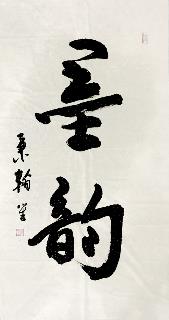 墨韵
秉翰书